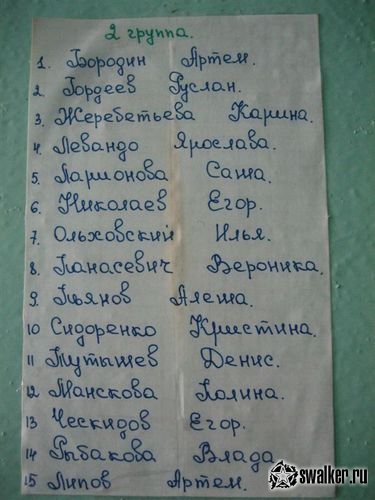 2 группа.
1. Бородин Артем.
2 Гордеев Руслан.
3. Жеребетьева Карина.
4. Левандо Ярослава.
5. Ларионова Саша.
6. Николаев Егор.
7. Ольховский Илья.
8. Панасевич Вероника.
9. Пьянов Алеша.
10 Сидоренко Кристина.
11 Тутышев Денис.
12 Манскова Полина.
13 Ческидов Егор.
14 Рыбакова Влада
15 Липов Артем.
swalker.ru